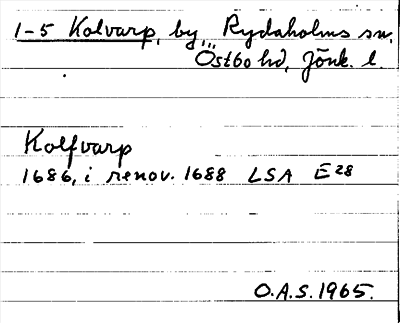 1-5 Kolvarp, by, Rydaholms sn.
Östbo hd, Jönk. l.
Kolfvarp
1686, i renov. 1688 LSA E 28
O.A.S. 1965.